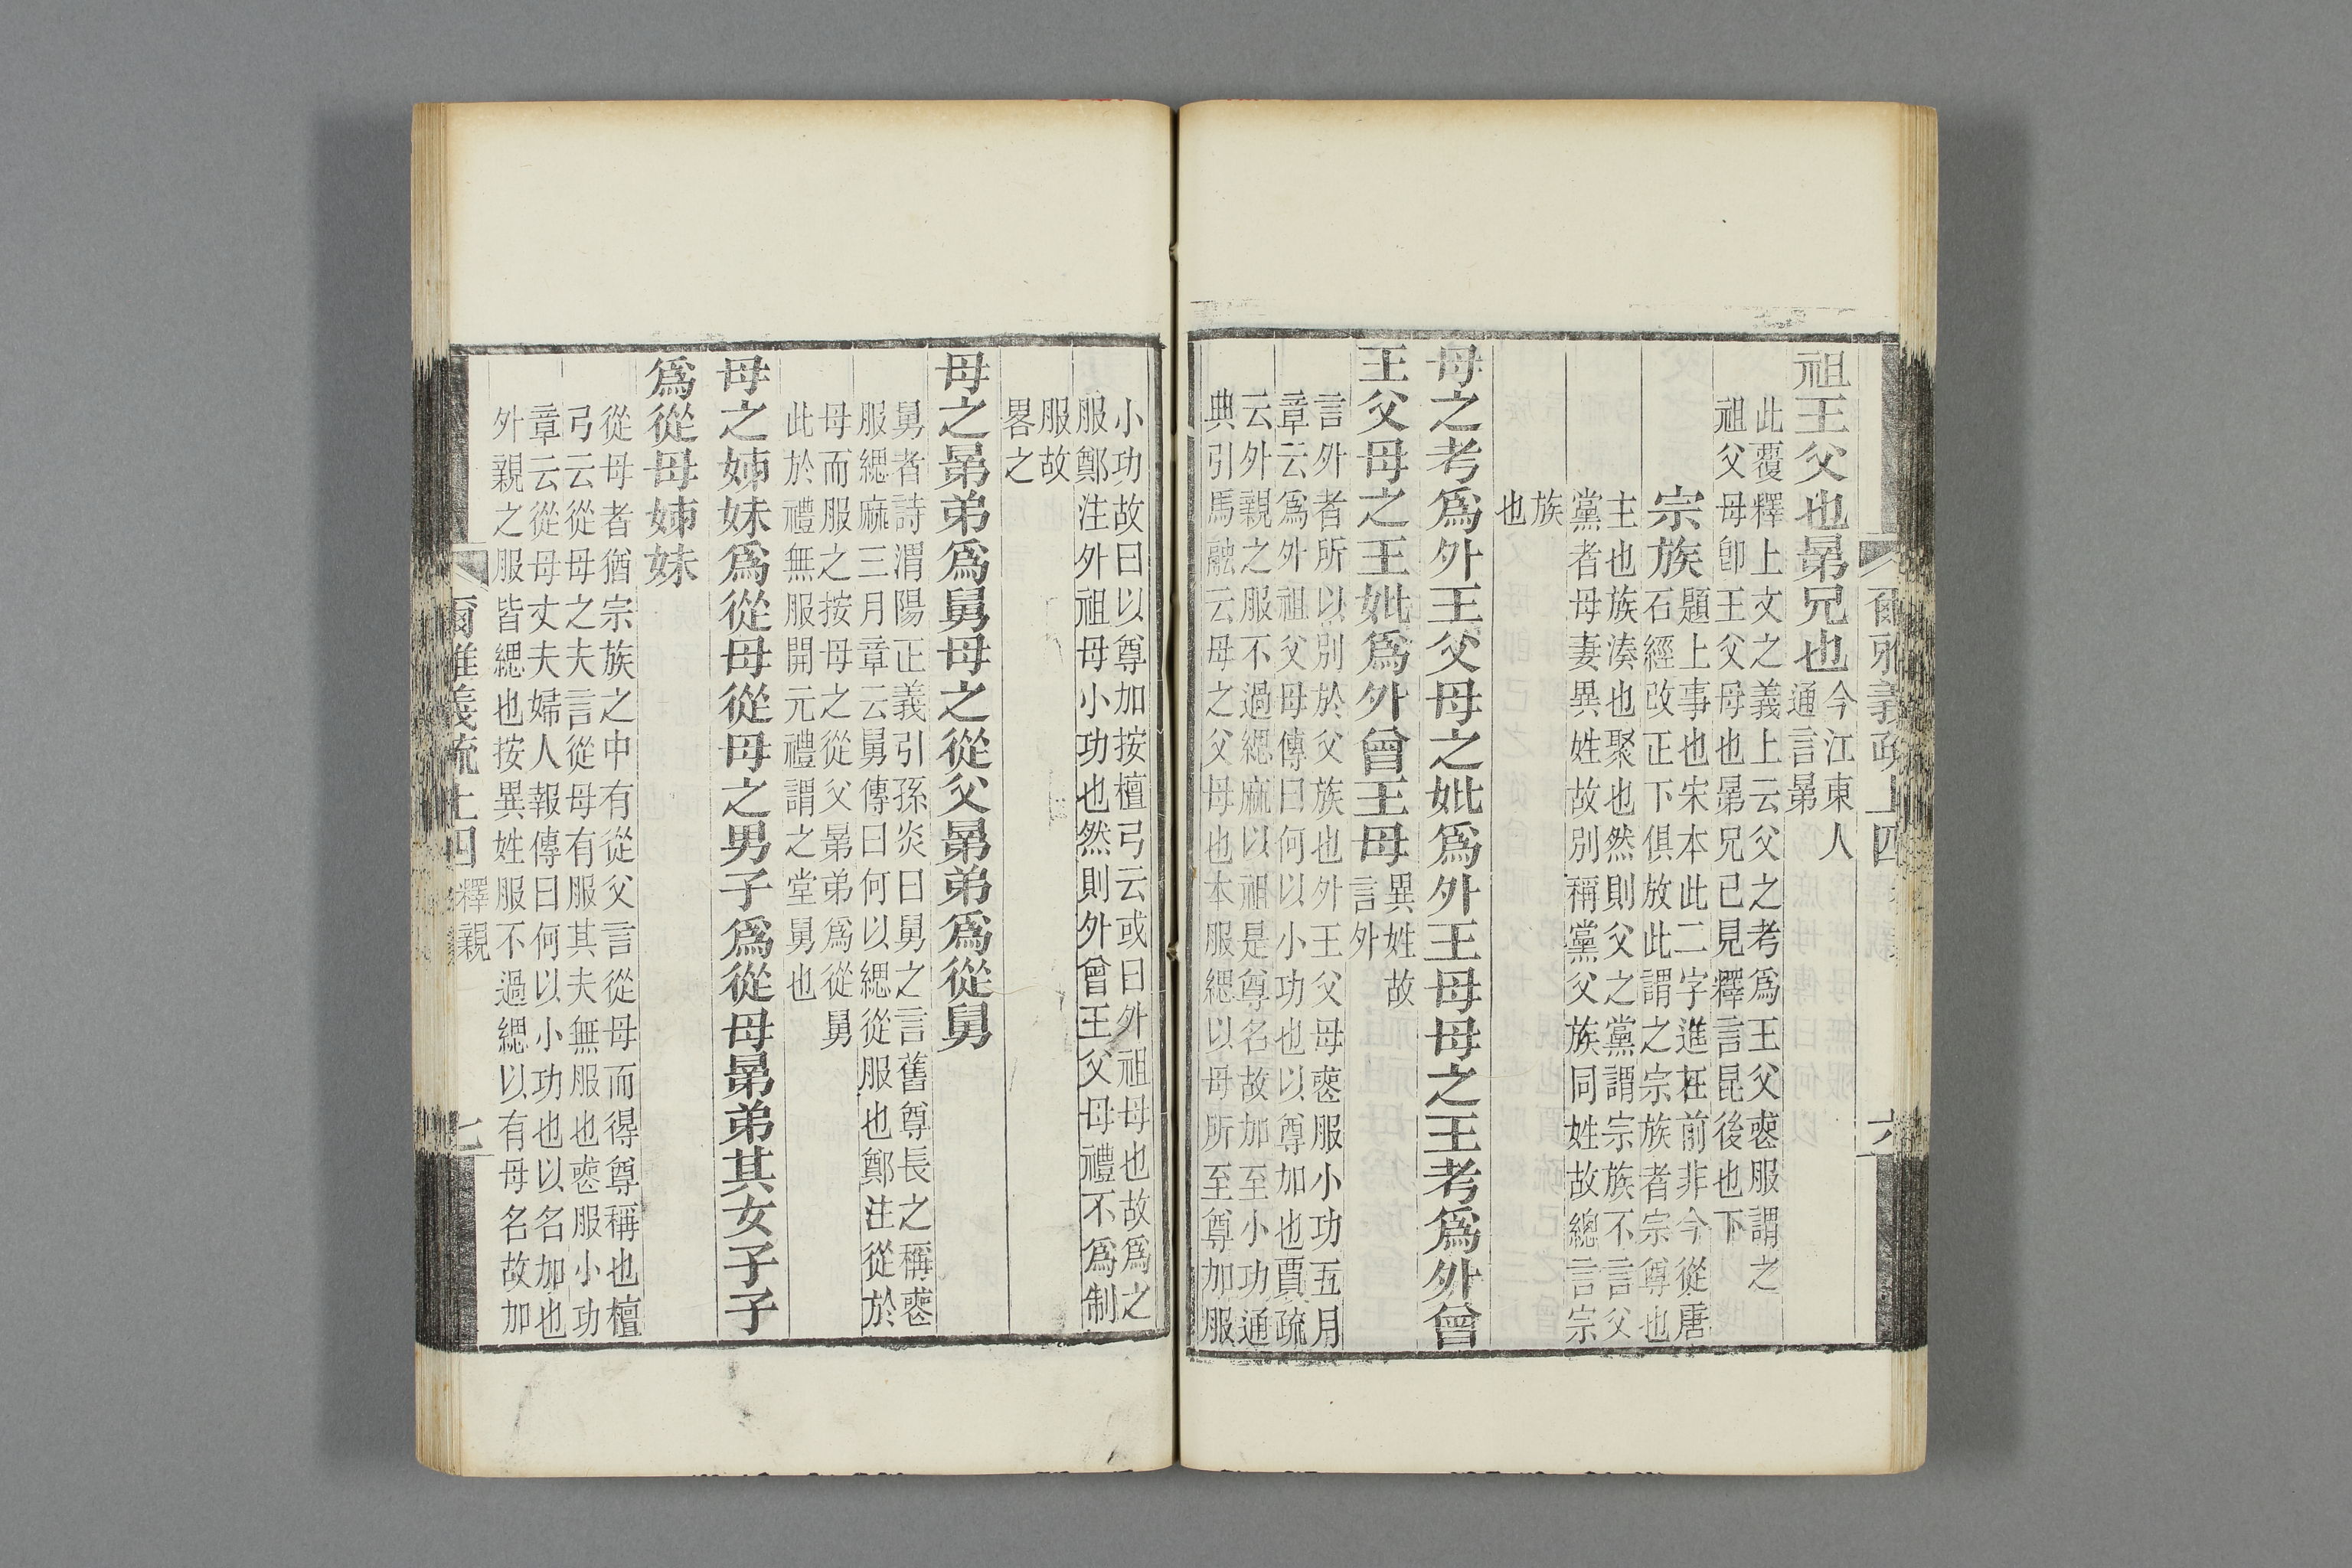 爾雅義疏上四
六
祖王父也晜兄也今江東人
通言晜
此覆釋上文之義上云父之考爲王父䘮服謂之
祖父母卽王父母也晜兄已見釋言昆後也下
宗族題上事也宋本此二字進在前非今從唐
石經改正下俱放此謂之宗族者宗尊也
主也族湊也聚也然則父之黨謂宗族不言父
黨者母妻異姓故別稱黨父族同姓故總言宗
族
也
母之考爲外王父母之妣爲外王母母之王考爲外曾
王父母之王妣爲外曾王母異姓故
言外
言外者所以別於父族也外王父母䘮服小功五月
章云爲外祖父母傳曰何以小功也以尊加也賈疏
云外親之服不過緦麻以祖是尊名故加至小功通
典引馬融云母之父母也本服緦以母所至尊加服
小功故曰以尊加按檀弓云或曰外祖母也故爲之
服鄭注外祖母小功也然則外曾王父母禮不爲制
服故
畧之
母之晜弟爲舅母之從父晜弟爲從舅
舅者詩渭陽正義引孫炎曰舅之言舊尊長之稱䘮
服緦麻三月章云舅傳曰何以緦從服也鄭注從於
母而服之按母之從父晜弟爲從舅
此於禮無服開元禮謂之堂舅也
母之姊妹爲從母從母之男子爲從母晜弟其女子子
爲從母姊妹
從母者猶宗族之中有從父言從母而得尊稱也檀
弓云從母之夫言從母有服其夫無服也䘮服小功
章云從母丈夫婦人報傳曰何以小功也以名加也
外親之服皆緦也按異姓服不過緦以有母名故加
爾雅義疏上四 釋親
七